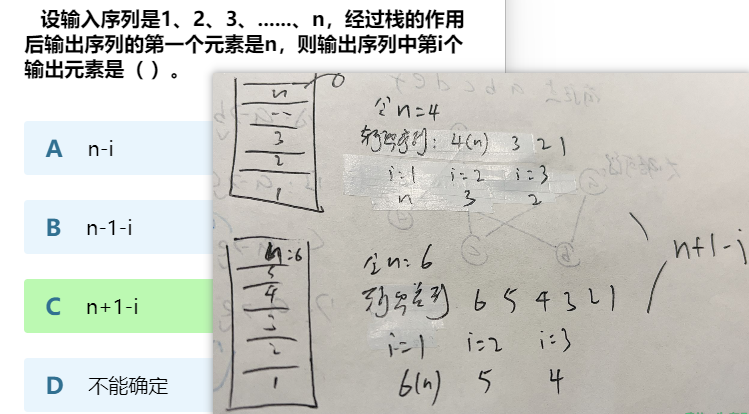 设输入序列是1、2、3、……、n，经过栈的作用
后输出序列的第一个元素是n，则输出序列中第i个
输出元素是（ ）。
A n-i
B n-1-i
C n+1-i
D 不能确定
n
--
3
2
1
令n=4
输出序列: 4(n) 3 2 1
i=1 i=2 i=3
n 3 2
n=6
5
4
3
2
1
令n=6
输出序列 6 5 4 3 2 1
i=1 i=2 i=3
6(n) 5 4
n+1-i